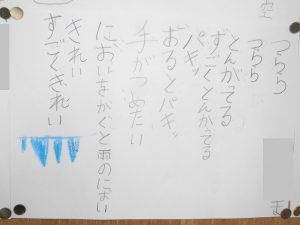 空
つらら
つらら
とんがってる
すごくとんがってる
パキッ
おるとパキッ
手がつめたい
においをかぐと雨のにおい
きれい
すごくきれい